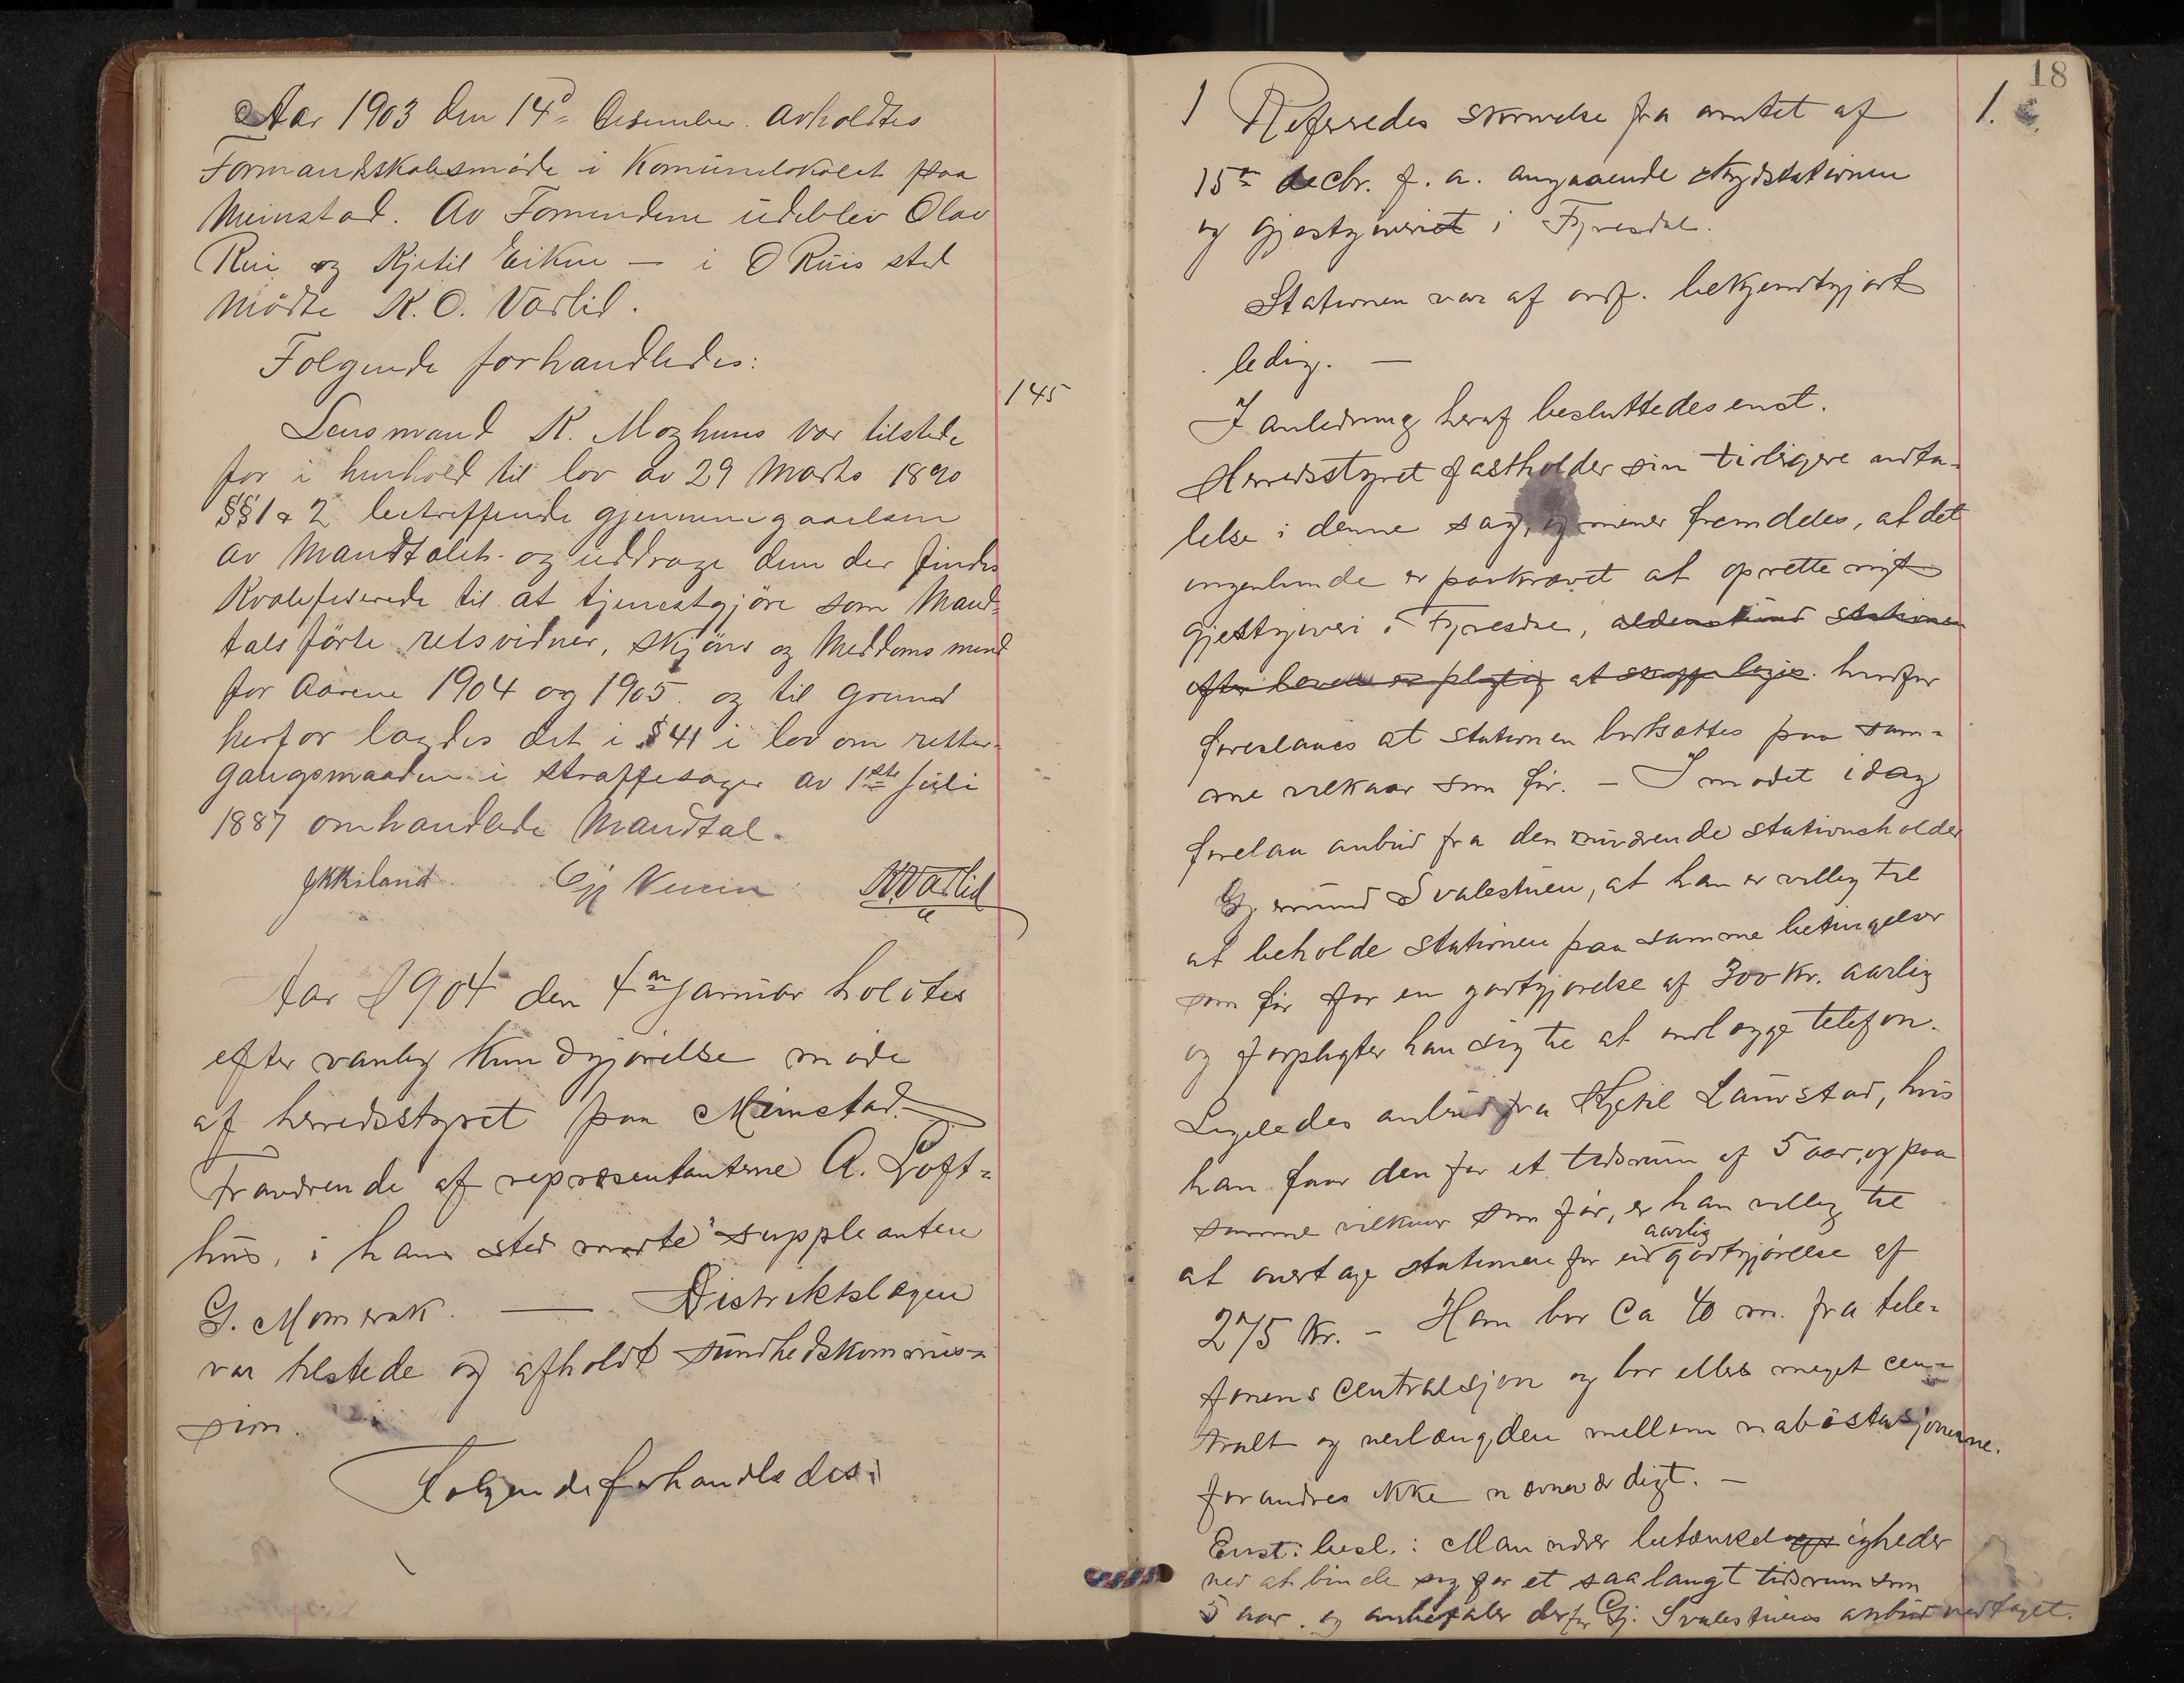 Aar 1903 den 14d Desember avholdtes
Formandskabsmøde i Komunelokalet paa
Meinstad. Av Formendene udeblev Olav
Rui og Kjetil Eikne — i O Ruis sted
mödte K. O. Vaslid.
Følgende forhandledes:
145
Lensmand K. Moghuus var tilstede
for i henhold til lov av 29 Marts 1890
§§ 1 & 2 betreffende gjennemgaaelsen
av Mandtalet og uddrage dem der findes
Kvalifiserede til at tjenestgjöre som Mand-
talsførte retsvidner, skjöns og Meddomsmend
for Aarene 1904 og 1905. og til grund
herfor lagdes det i § 41 i lov om retter-
gangsmaaden i straffesager av 1ste Juli
1887 omhandlede Mandtal.
K Vaslid
Aar 1904 den 4de januar holdtes
efter vanlig kundgjørelse møde
af herredsstyret paa Meinstad.
Fraværende af repræsentanterne A. Loft-
hus, i hans sted mødte suppleanten
G. Momrak. — Distriktslægen
var tilstede og afholdt sundhedskommis-
sion.
Følgende forhandledes:
18
1.
1 Refereredes skrivelse fra amtet af
15de decbr. f. a. angaaende skydsstationen
og gjestgiveriet i Fyresdal.
Stationen var af ordf. bekjendtgjort
ledig. —
I anledning heraf besluttedes enst.
Herredsstyret fastholder sin tidligere udta-
lelse i denne sag, og mener fremdeles, at det
ingenlunde er paakrævet at oprette nyt
gjestgiveri i Fyresdal, aldenstund stationen
efter loven er pligtig at skaffe logis. hvorfor
foreslaaes at stationen bortsættes paa sam-
me vilkaar som før. — I mødet idag
forelaa anbud fra den nuværende stationsholder
Gj.mund Svalestuen, at han er villig til
at beholde stationen paa samme betingelser
som før for en godtgjørelse af 300 Kr. aarlig
og forpligter han sig til at indlægge telefon.
Ligeledes anbud fra Kjetil Launstad, hvis
han faar den for et tidsrum af 5 aar, og paa
samme vilkaar som før, er han villig til
at overtage stationen for en aarlig godtgjørelse af
275 Kr. — Han bor ca 40 m. fra tele-
fonens centralsjon og bor ellers meget cen-
tralt og veilængden mellem nabostasjonerne.
forandres ikke nævneværdigt. —
Enst. besl.: Man nærer betænkeligheder
ved at binde sig for et saa langt tidsrum som
5 aar. og anbefaler derfor Gj. Svalestuens anbud vedtaget.